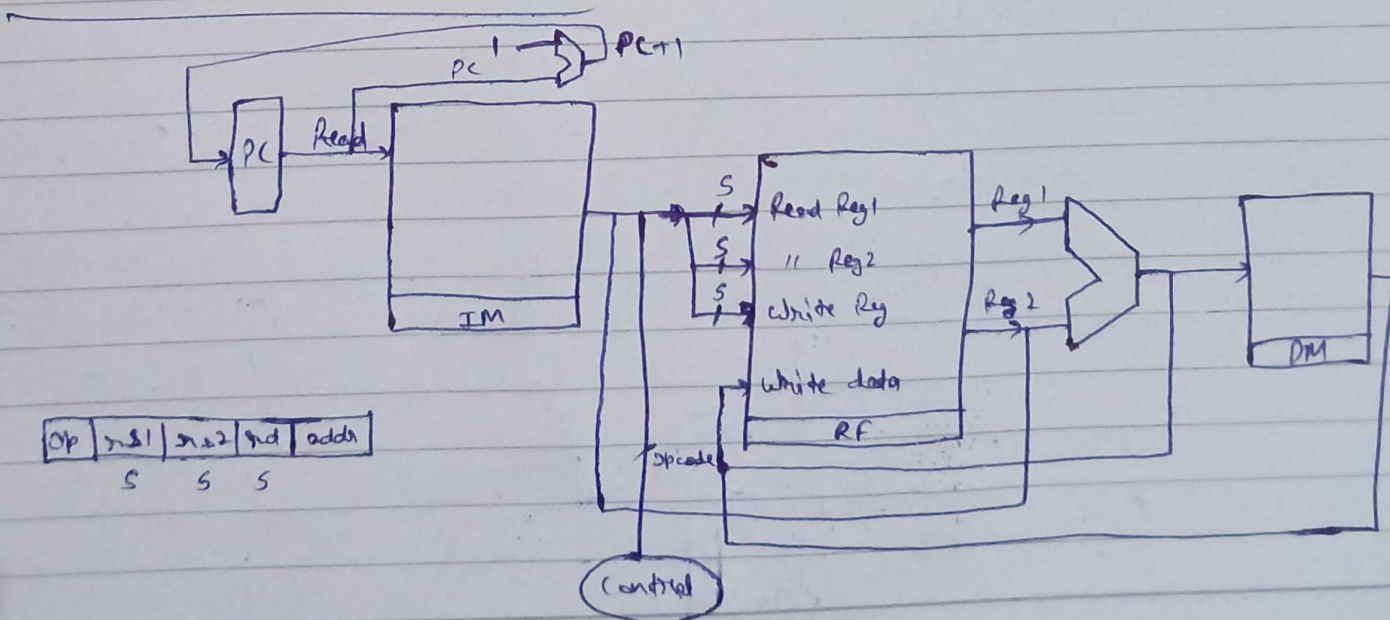 1
PC+1
PC
PC
Read
IM
5
Read Reg1
5
" Reg2
5
Write Reg
Write data
RF
Reg1
Reg2
DM
op rs1 rs2 rd addr
5 5 5
opcode
Control